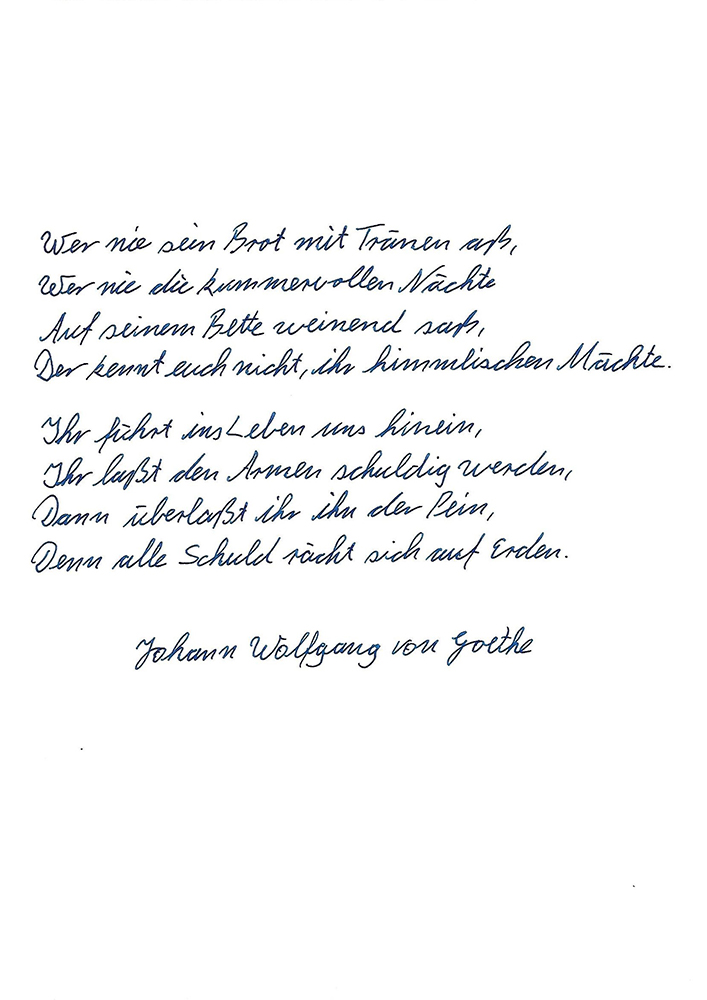 Wer nie sein Brot mit Tränen aß,
Wer nie die kummervollen Nächte
Auf seinem Bette weinend saß,
Der kennt euch nicht, ihr himmlischen Mächte.
Ihr führt ins Leben uns hinein,
Ihr laßt den Armen schuldig werden,
Dann überlaßt ihr ihn der Pein,
Denn alle Schuld rächt sich auf Erden.
Johann Wolfgang von Goethe